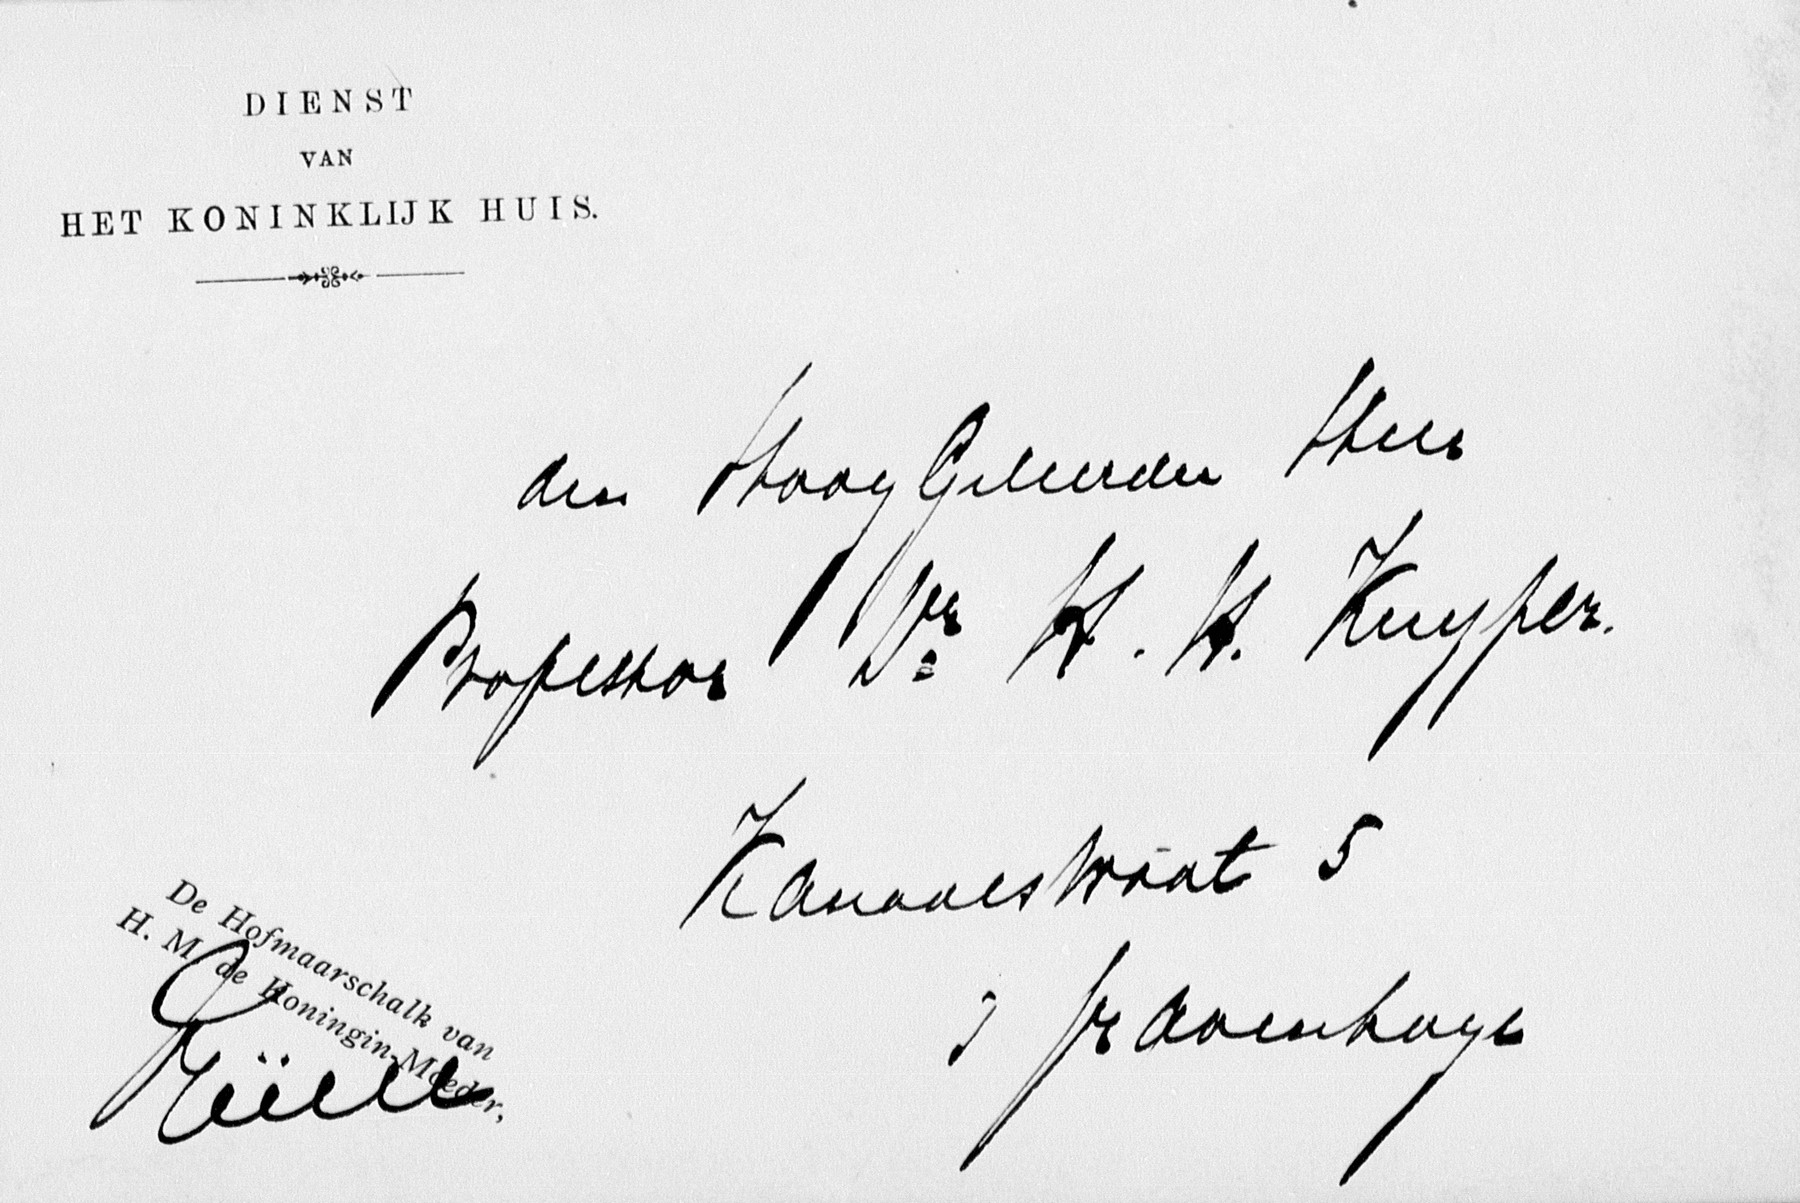 DIENST
VAN
HET KONINKLIJK HUIS.
den HoogGeleerden Heer
Professor Dr H. H. Kuyper.
Kanaalstraat 5
's Gravenhage
De Hofmaarschalk van
H. M. de Koningin-Moeder,